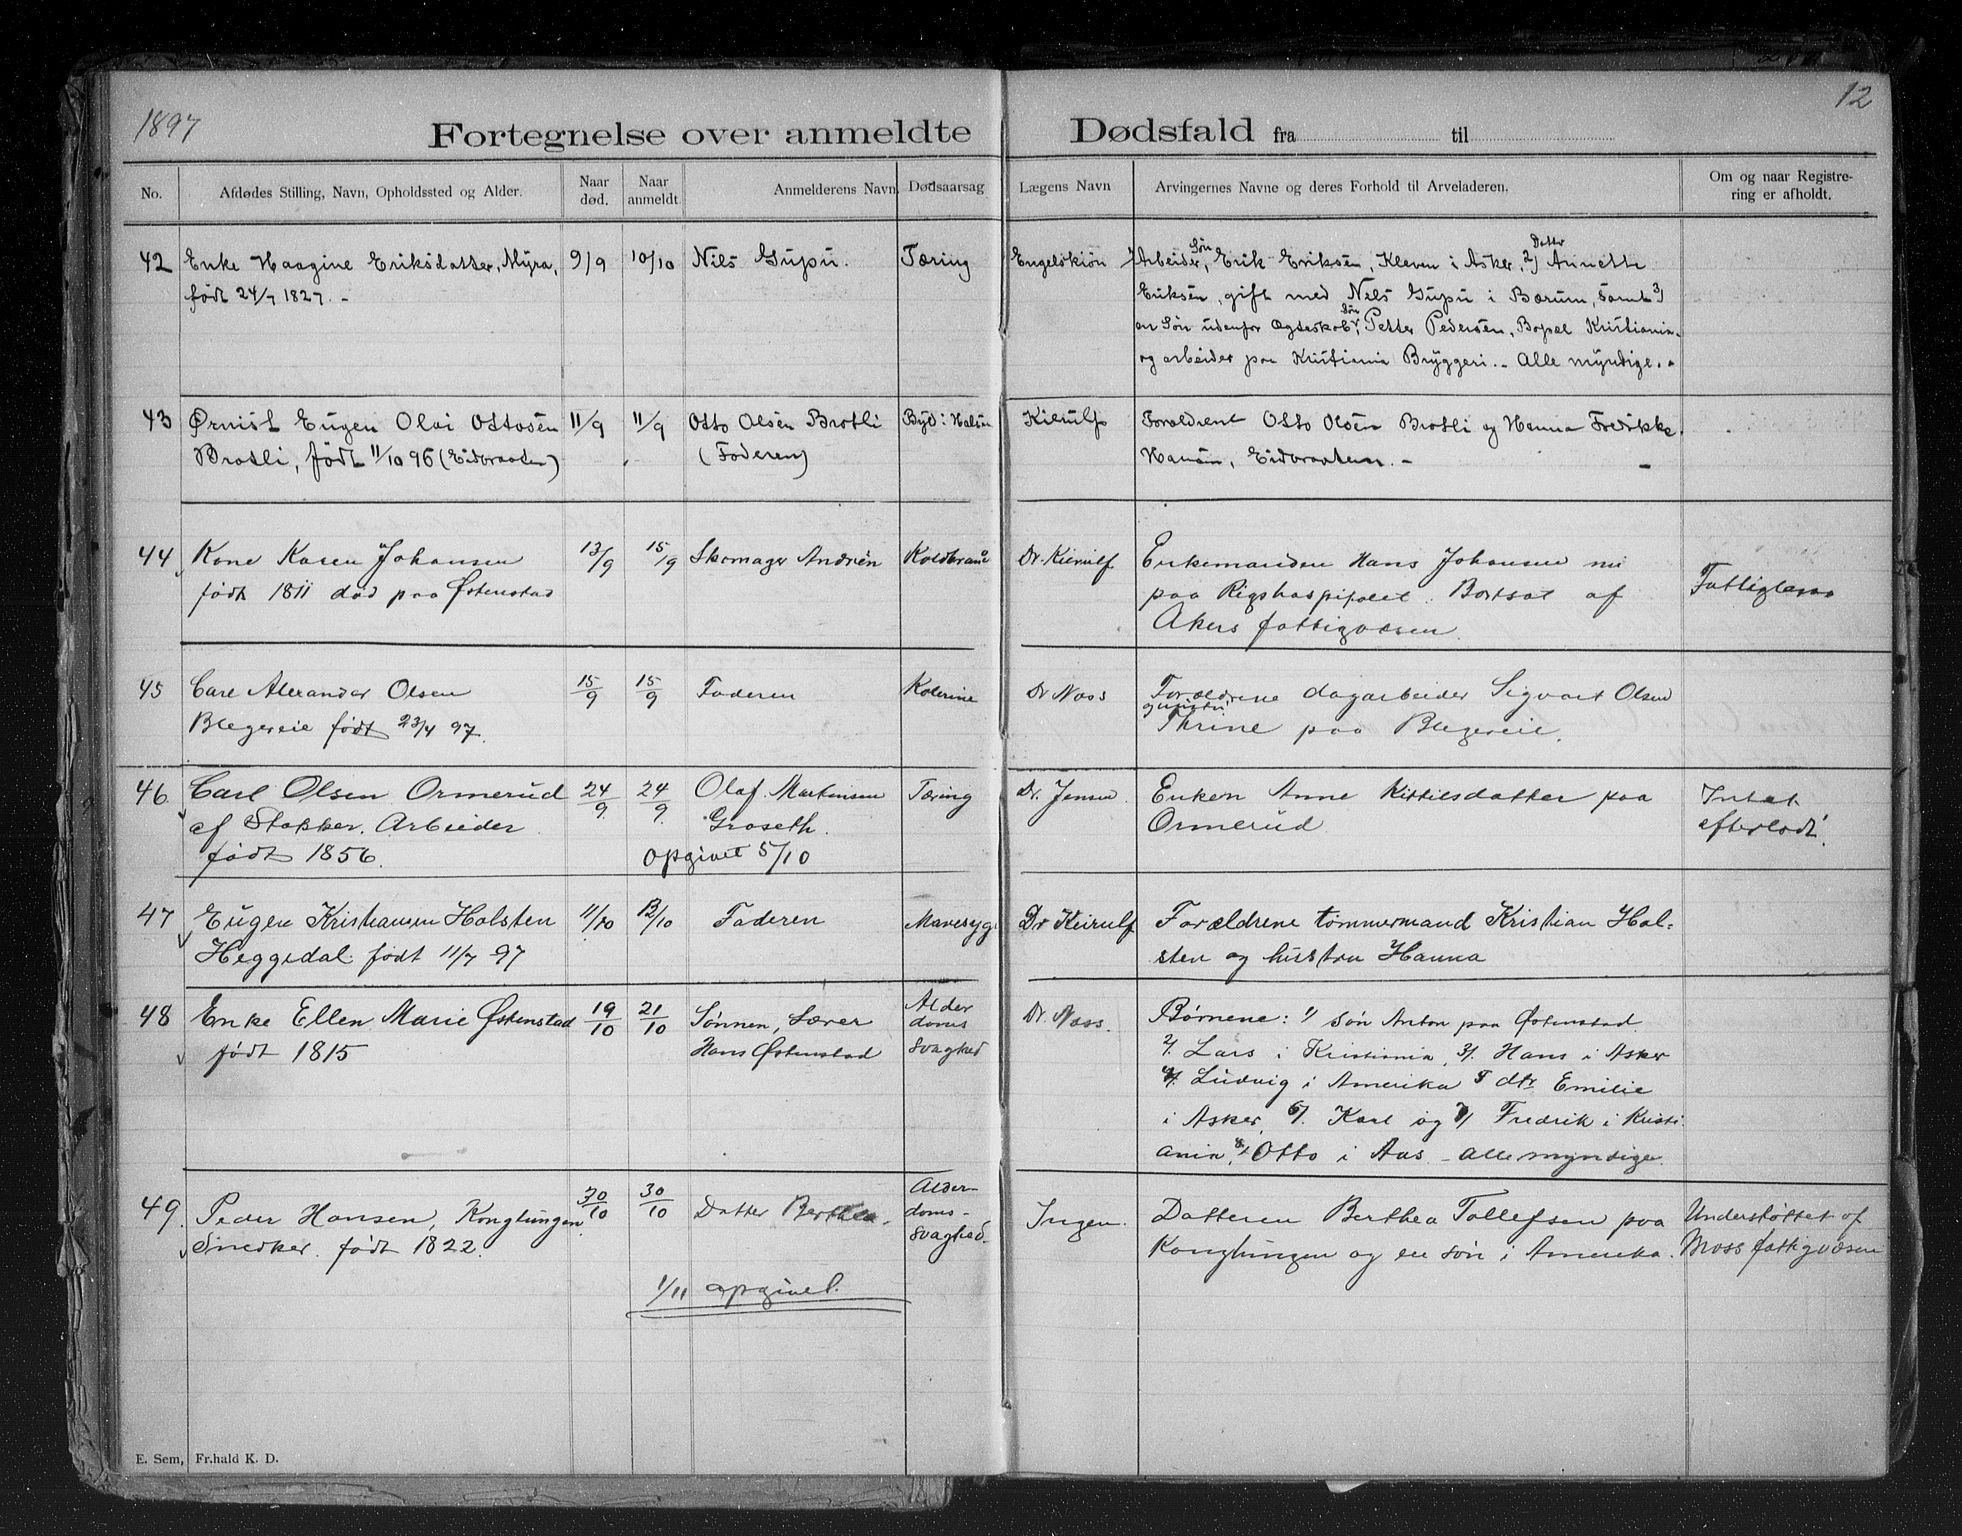 1897
12
Fortegnelse over anmeldte Dødsfald fra til
No.
Afdødes Stilling, Navn, Opholdssted og Alder.
Naar død.
Naar anmeldt.
Anmelderens Navn.
Dødsaarsag
Lægens Navn
Arvingernes Navne og deres Forhold til Arveladeren.
Om og naar Registre-
ring er afholdt.
42
Enke Haagine Eriksdatter, Myra,
født 24/7 1827. -
9/9
10/10
Nils Gupu.
Tæring
Engelskiøn
1/ Arbeider, Søn Erik Eriksen, Kleven i Asker, 2/ Datter Annette
Eriksen, gift med Nils Gupu i Bærum, samt 3/
en Søn udenfor Ægteskab, Søn Petter Pedersen, Bopæl Kristiania
og arbeider paa Kristiania Bryggeri. - Alle myndige. -
43
Ørnist Eugen Olai Ottosen
Brotli, født 11/10 96 (Eidbraaten)
11/9
11/9
Otto Olsen Brotli
(Faderen)
Byld i Halsen
Kierulf
Forældrene Otto Olsen Brotli og Hanna Fredrikke
Hansen, Eidbraaten. -
44
Kone Karen Johansen
født 1811 død paa Østenstad
13/9
15/9
Skomager Andrién
Koldbrand
Dr. Kierulf
Enkemanden Hans Johansen nu
paa Rigshospitalet. Bortsat af
Akers fattigvæsen.
Fattiglem
45
Carl Alexander Olsen
Blegereie født 23/4 97.
15/9
15/9
Faderen
Kolerine
Dr Næss
Forældrene dagarbeider Sigvart Olsen
og hustru
Thrine paa Blegereie.
46
Carl Olsen Ormerud
af Stokker. Arbeider
født 1856.
24/9
24/9
Olaf Martensen
Graseth.
opgivet 5/10
Tæring
Dr. Jensen
Enken Anne Kittilsdatter paa
Ormerud
Intet
efterladt!
47
Eugen Kristiansen Holsten
Heggedal født 11/7 97
11/10
12/10
Faderen
Mavesyge
Dr Keirulf
Forældrene tømmermand Kristian Hol-
sten og hustru Hanna
48
Enke Ellen Marie Østenstad
født 1815
19/10
21/10
Sønnen, Lærer
Hans Østenstad
Alder
doms
svaghed
Dr. Næss.
Børnene: 1/ søn Anton paa Østenstad
2/. Lars i Kristiania, 3/. Hans i Asker
4/. Ludvig i Amerika 5 dtr Emilie
i Asker, 6/. Karl og 7/ Fredrik i Kristi
ania, 8/ Otto i Aas - alle myndige.
49.
Peder Hansen, Konglungen
Snedker. født 1822.
30/10
30/10
Datter Berthea.
Alder-
doms-
svaghed.
Ingen.
Datteren Berthea Tollefsen paa
Konglungen og en søn i Amerika.
Understøttet af
Moss fattigvæsen
1/11 opgivet.
E. Sem, Fr.hald K. D.